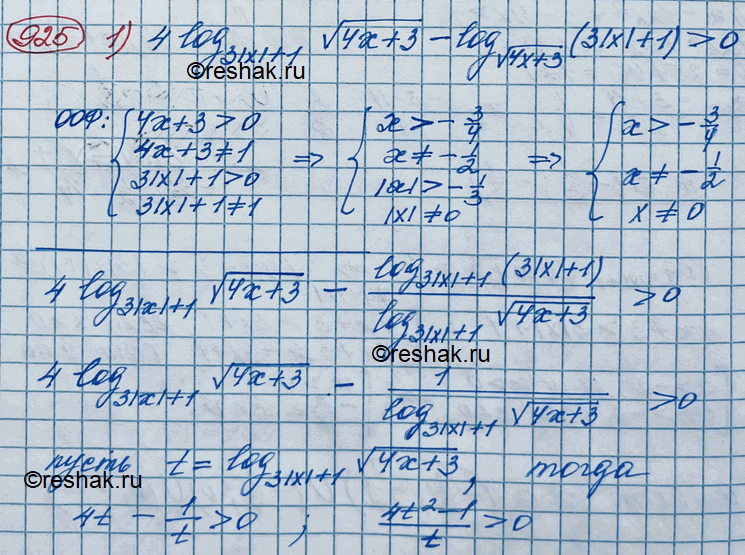 925 1) 4 log_{3|x|+1} √(4x+3) − log_{√(4x+3)} (3|x|+1) > 0
©reshak.ru
ООФ: { 4x+3>0 ; 4x+3≠1 ; 3|x|+1>0 ; 3|x|+1≠1 ⇒ { x>−3/4 ; x≠−1/2 ; |x|>−1/3 ; |x|≠0 ⇒ { x>−3/4 ; x≠−1/2 ; x≠0
4 log_{3|x|+1} √(4x+3) − log_{3|x|+1} (3|x|+1) / log_{3|x|+1} √(4x+3) > 0
©reshak.ru
4 log_{3|x|+1} √(4x+3) − 1 / log_{3|x|+1} √(4x+3) > 0
пусть t = log_{3|x|+1} √(4x+3), тогда
©reshak.ru
4t − 1/t > 0 ; (4t²−1)/t > 0